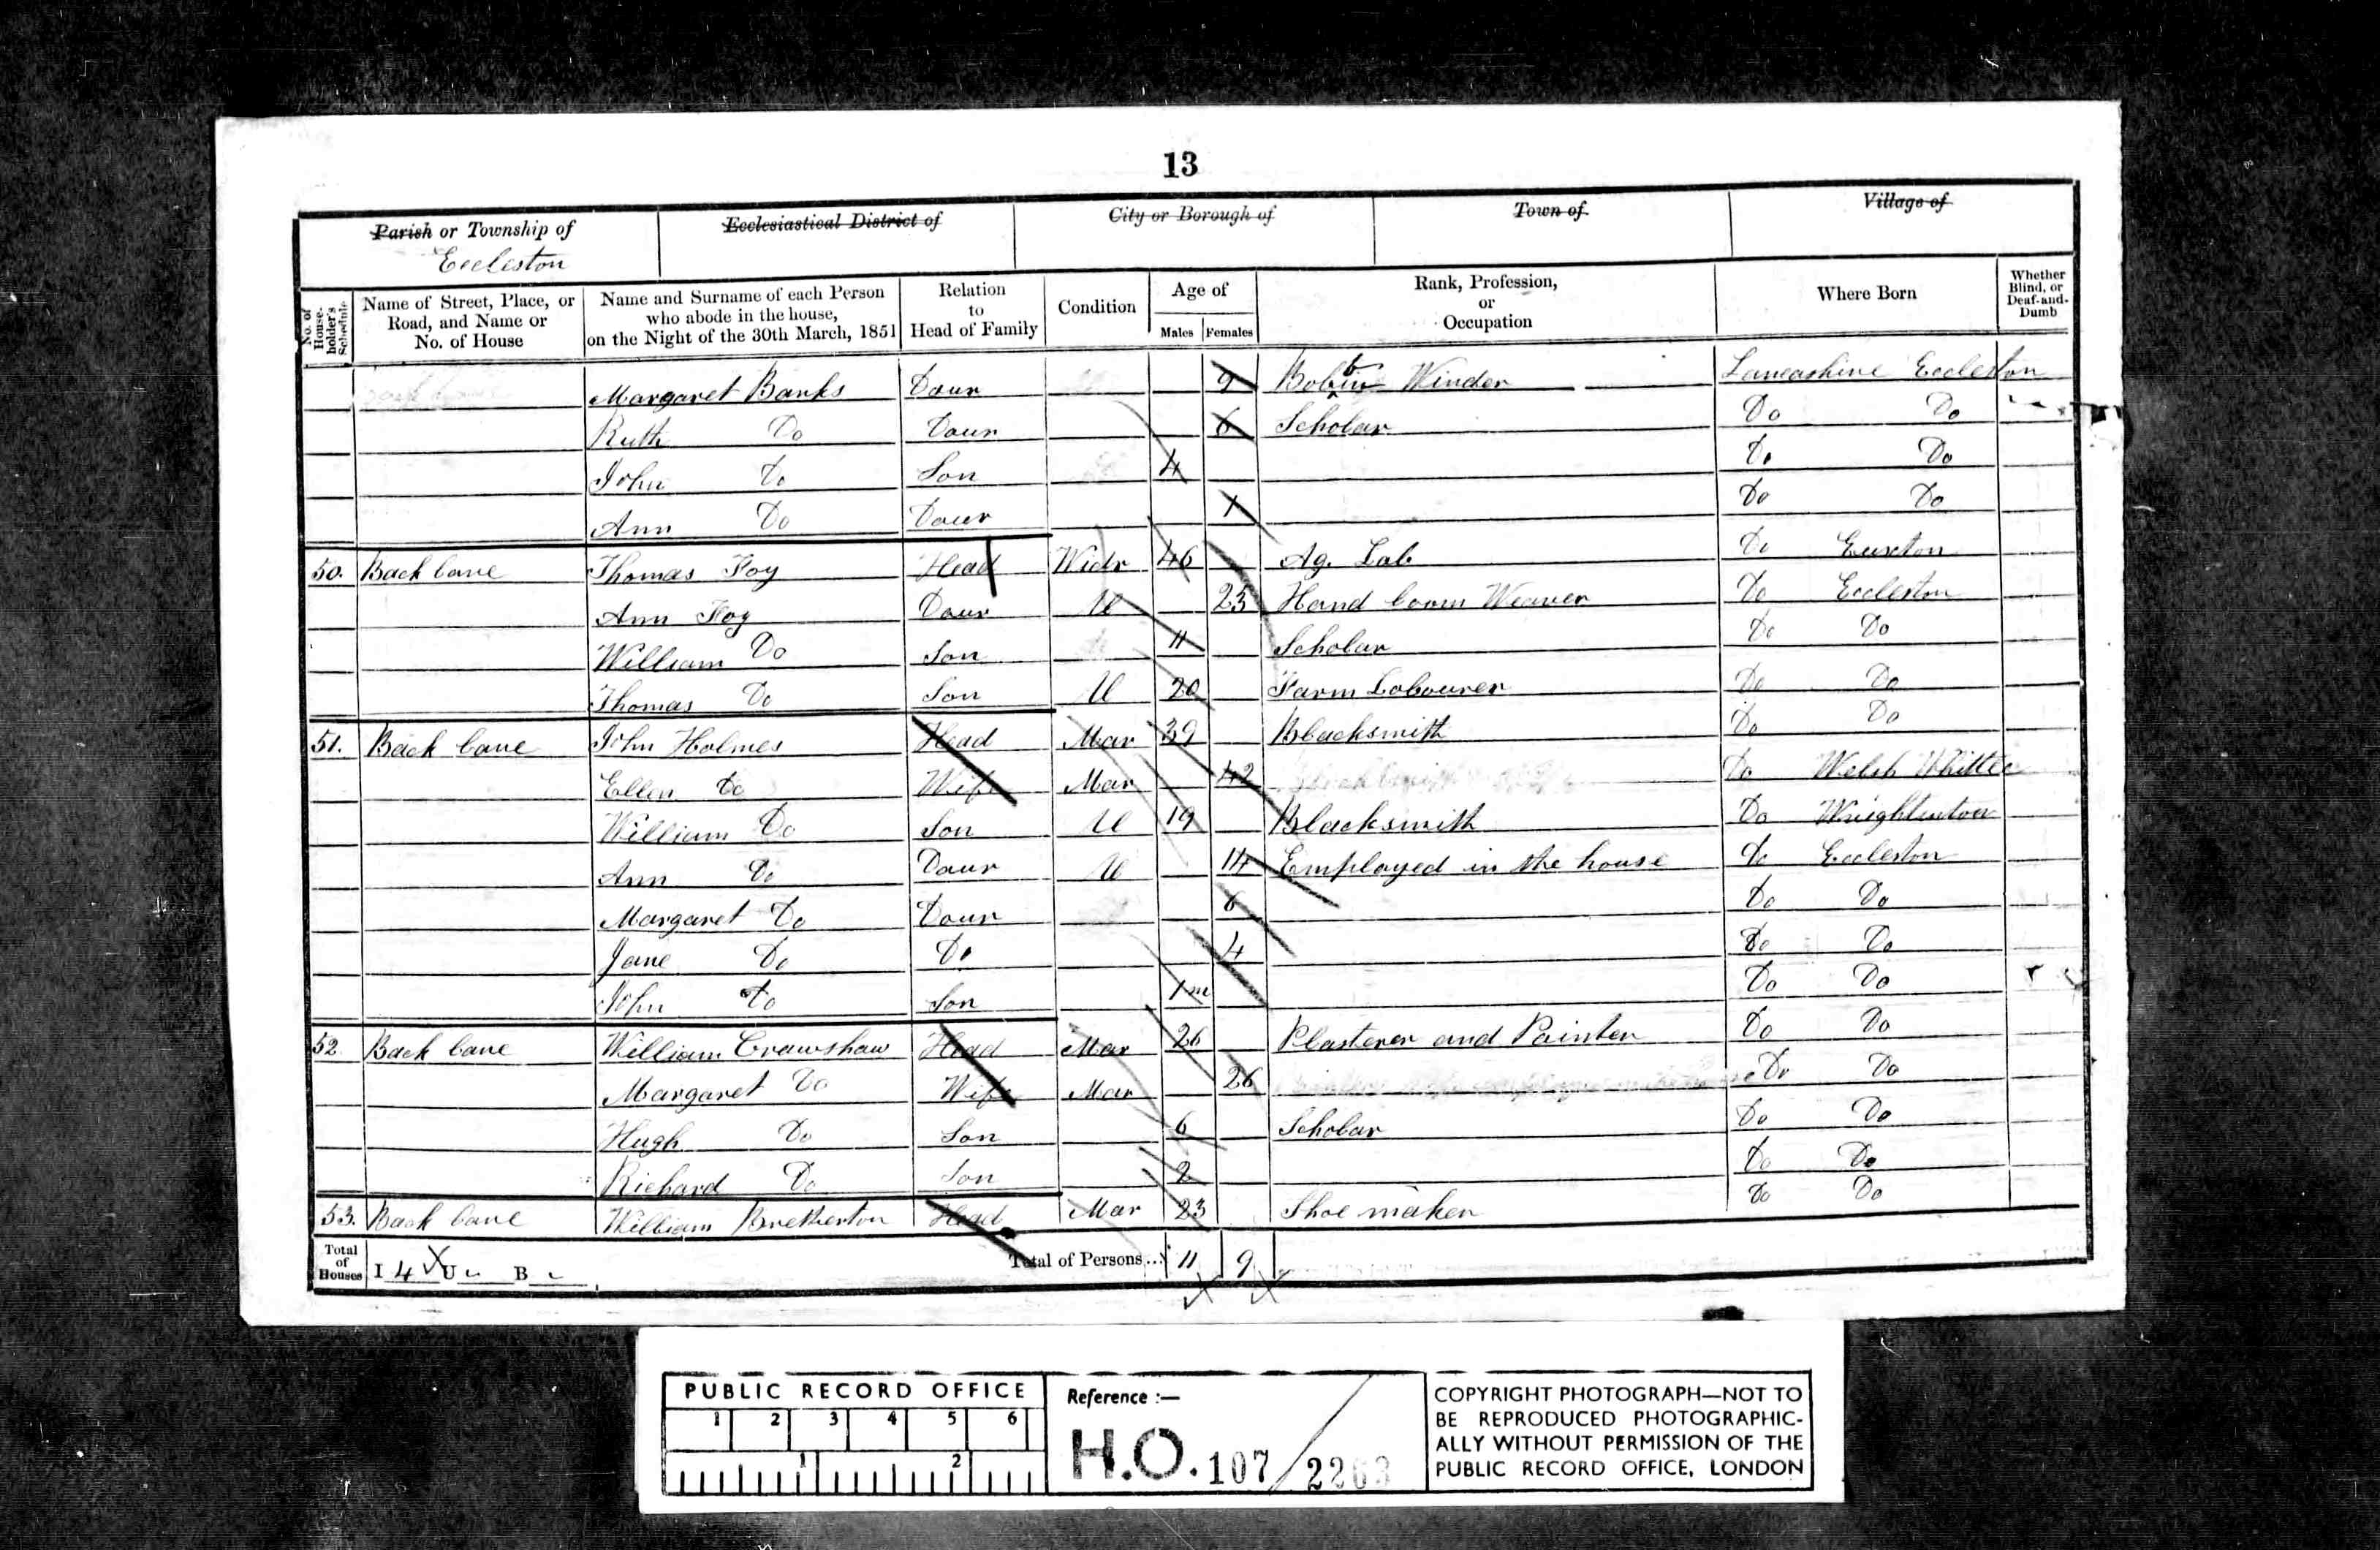 13
Parish or Township of
Eccleston
Ecclesiastical District of
City or Borough of
Town of
Village of
No. of House-holder's Schedule
Name of Street, Place, or Road, and Name or No. of House
Name and Surname of each Person who abode in the house, on the Night of the 30th March, 1851
Relation to Head of Family
Condition
Age of
Males Females
Rank, Profession, or Occupation
Where Born
Whether Blind, or Deaf-and-Dumb
Margaret Banks Daur 9 Bobbin Winder Lancashire Eccleston
Ruth Do Daur 6 Scholar Do Do
John Do Son 4 Do Do
Ann Do Daur 1 Do Do
50. Back lane Thomas Foy Head Widr 46 Ag. Lab Do Euxton
Ann Foy Daur U 23 Hand loom Weaver Do Eccleston
William Do Son 11 Scholar Do Do
Thomas Do Son U 20 Farm Labourer Do Do
51. Back lane John Holmes Head Mar 39 Blacksmith Do Do
Ellen Do Wife Mar 42 Do Welsh Whittle
William Do Son U 19 Blacksmith Do Wrightinton
Ann Do Daur U 14 Employed in the house Do Eccleston
Margaret Do Daur 6 Do Do
Jane Do Do 4 Do Do
John Do Son 1m Do Do
52. Back lane William Crawshaw Head Mar 26 Plasterer and Painter Do Do
Margaret Do Wife Mar 26 Do Do
Hugh Do Son 6 Scholar Do Do
Richard Do Son 2 Do Do
53. Back lane William Bretherton Head Mar 23 Shoe maker Do Do
Total of Houses I 4 U B Total of Persons... 11 9
PUBLIC RECORD OFFICE
1 2 3 4 5 6
1 2
Reference :—
H.O. 107/2263
COPYRIGHT PHOTOGRAPH—NOT TO
BE REPRODUCED PHOTOGRAPHIC-
ALLY WITHOUT PERMISSION OF THE
PUBLIC RECORD OFFICE, LONDON